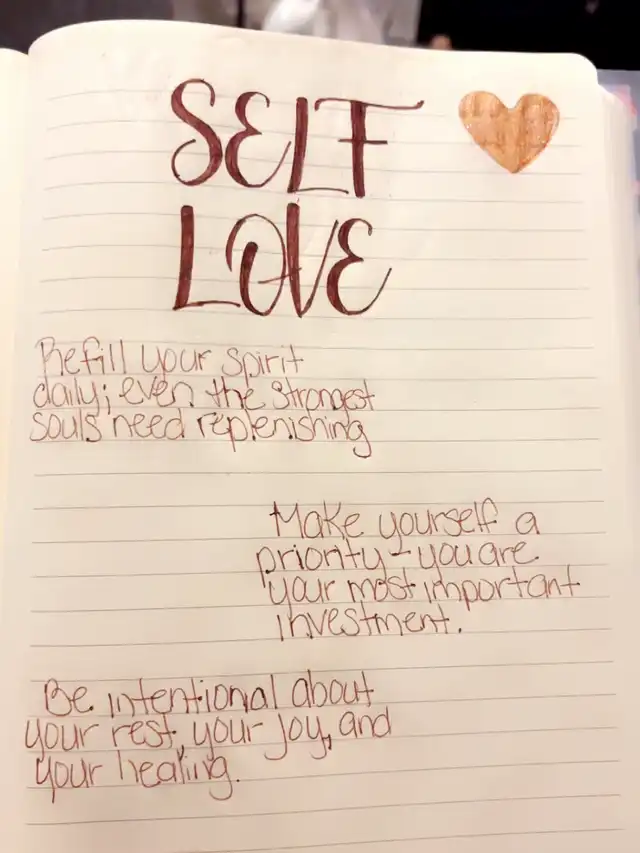 SELF
LOVE
Refill your spirit
daily; even the strongest
souls need replenishing
Make yourself a
priority - you are
your most important
investment.
Be intentional about
your rest, your joy, and
your healing.